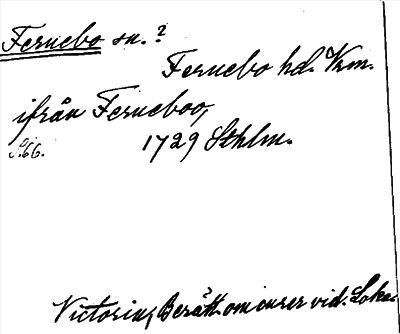 Fernebo sn.?
Fernebo hd. Vrm.
ifrån Ferneboo,
S.66.
1729 Sthlm.
Victorin, Berätt. om curer vid. Loka.